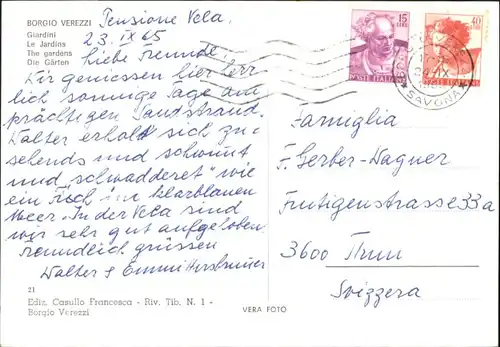 BORGIO VEREZZI
Giardini
Le Jardins
The gardens
Die Gärten
Pensione Vela.
23. IX 65
Liebe Freunde
Wir geniessen hier herr
lich sonnige Tage am
prächtigen Sandstrand.
Walter erholt sich zu-
sehends und schwimmt
und "schwadderet" wie
ein Fisch im klarblauen
Meer. In der Vela sind
wir sehr gut aufgehoben.
Freundlich grüssen
Walter & Emmi
21
Ediz. Casullo Francesca - Riv. Tib. N. 1 -
Borgio Verezzi
VERA FOTO
15
LIRE
POSTE ITALIANE
40
SAVONA
Famiglia
F. Gerber-Wagner
Frutigenstrasse 33a
3600 Thun
Svizzera